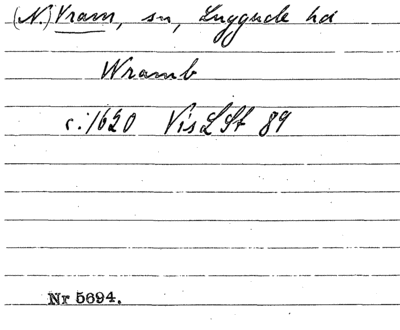 (N.) Vram, sn, Luggude hd
Wramb
c:1620 VisLSt 89
Nr 5694.